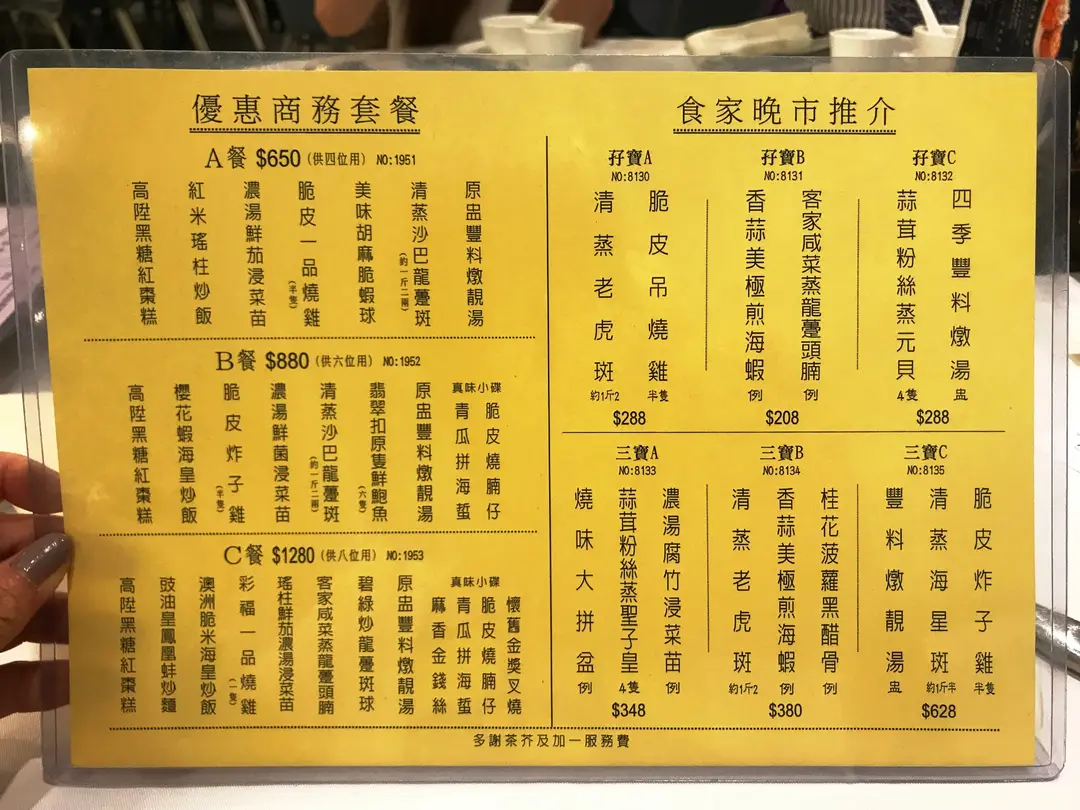 優惠商務套餐
A餐 $650 (供四位用) NO:1951
原盅豐料燉靚湯
清蒸沙巴龍躉斑(約一斤二兩)
美味胡麻脆蝦球
脆皮一品燒雞(半隻)
濃湯鮮茄浸菜苗
紅米瑤柱炒飯
高陞黑糖紅棗糕
B餐 $880 (供六位用) NO:1952
真味小碟
脆皮燒腩仔
青瓜拼海蜇
原盅豐料燉靚湯
翡翠扣原隻鮮鮑魚(六隻)
清蒸沙巴龍躉斑(約一斤二兩)
濃湯鮮菌浸菜苗
脆皮炸子雞(半隻)
櫻花蝦海皇炒飯
高陞黑糖紅棗糕
C餐 $1280 (供八位用) NO:1953
真味小碟
懷舊金獎叉燒
脆皮燒腩仔
青瓜拼海蜇
麻香金錢絲
原盅豐料燉靚湯
碧綠炒龍躉斑球
客家咸菜蒸龍躉頭腩
瑤柱鮮茄濃湯浸菜苗
彩福一品燒雞(一隻)
澳洲脆米海皇炒飯
豉油皇鳳凰蚌炒麵
高陞黑糖紅棗糕
食家晚市推介
孖寶A
NO:8130
脆皮吊燒雞 半隻
清蒸老虎斑 約1斤2
$288
孖寶B
NO:8131
客家咸菜蒸龍躉頭腩 例
香蒜美極煎海蝦 例
$208
孖寶C
NO:8132
四季豐料燉湯 盅
蒜茸粉絲蒸元貝 4隻
$288
三寶A
NO:8133
濃湯腐竹浸菜苗 例
蒜茸粉絲蒸聖子皇 4隻
燒味大拼盆 例
$348
三寶B
NO:8134
桂花菠蘿黑醋骨 例
香蒜美極煎海蝦 例
清蒸老虎斑 約1斤2
$380
三寶C
NO:8135
脆皮炸子雞 半隻
清蒸海星斑 約1斤半
豐料燉靚湯 盅
$628
多謝茶芥及加一服務費